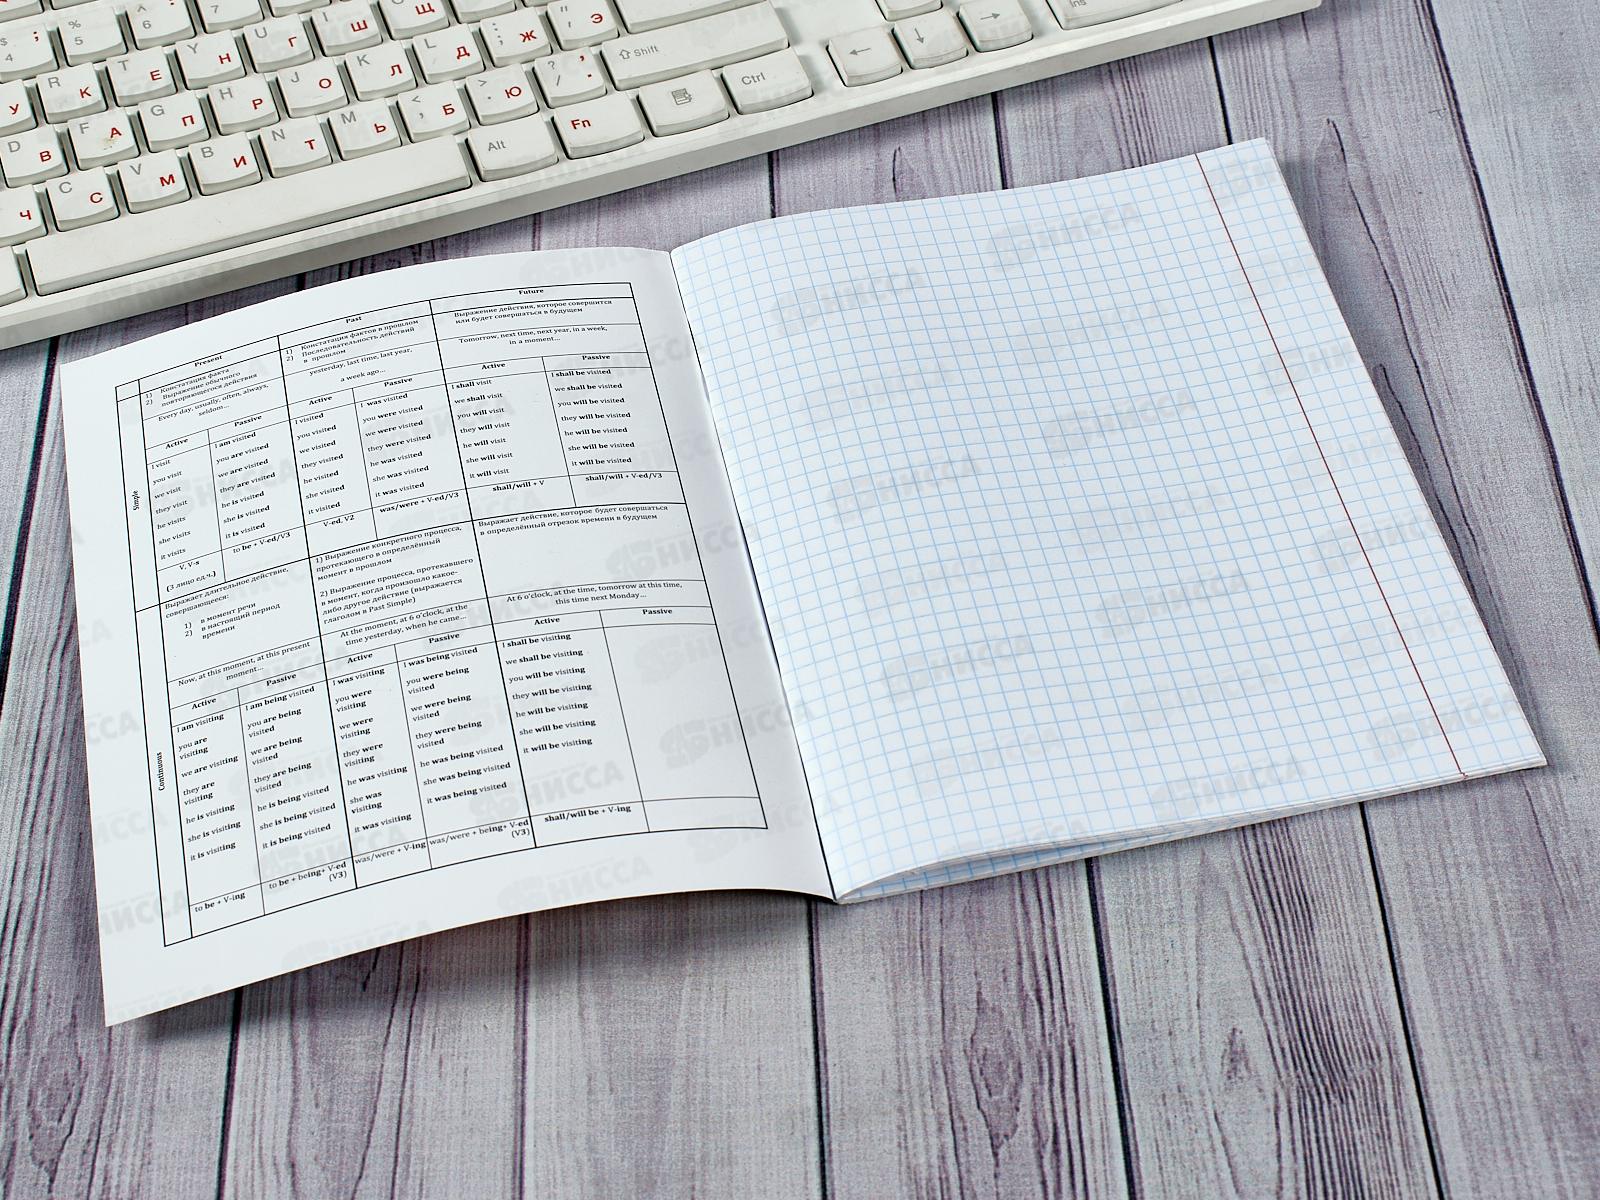 Present
Past
Future
Simple
1) Констатация факта
2) Выражение обычного
повторяющегося действия
Every day, usually, often, always,
seldom...
1) Констатация фактов в прошлом
2) Последовательность действий
в прошлом
yesterday, last time, last year,
a week ago...
Выражение действия, которое совершится
или будет совершаться в будущем
Tomorrow, next time, next year, in a week,
in a moment...
Active
I visit
you visit
we visit
they visit
he visits
she visits
it visits
V, V-s
(3 лицо ед.ч.)
Passive
I am visited
you are visited
we are visited
they are visited
he is visited
she is visited
it is visited
to be + V-ed/V3
Active
I visited
you visited
we visited
they visited
he visited
she visited
it visited
V-ed, V2
Passive
I was visited
you were visited
we were visited
they were visited
he was visited
she was visited
it was visited
was/were + V-ed/V3
Active
I shall visit
we shall visit
you will visit
they will visit
he will visit
she will visit
it will visit
shall/will + V
Passive
I shall be visited
we shall be visited
you will be visited
they will be visited
he will be visited
she will be visited
it will be visited
shall/will + V-ed/V3
Continuous
Выражает длительное действие,
совершающееся:
1) в момент речи
2) в настоящий период
времени
Now, at this moment, at this present
moment...
1) Выражение конкретного процесса,
протекающего в определённый
момент в прошлом
2) Выражение процесса, протекавшего
в момент, когда произошло какое-
либо другое действие (выражается
глаголом в Past Simple)
At the moment, at 6 o'clock, at the
time yesterday, when he came...
Выражает действие, которое будет совершаться
в определённый отрезок времени в будущем
At 6 o'clock, at the time, tomorrow at this time,
this time next Monday...
Active
I am visiting
you are
visiting
we are visiting
they are
visiting
he is visiting
she is visiting
it is visiting
to be + V-ing
Passive
I am being visited
you are being
visited
we are being
visited
they are being
visited
he is being visited
she is being visited
it is being visited
to be + being+ V-ed
(V3)
Active
I was visiting
you were
visiting
we were
visiting
they were
visiting
he was visiting
she was
visiting
it was visiting
was/were + V-ing
Passive
I was being visited
you were being
visited
we were being
visited
they were being
visited
he was being visited
she was being visited
it was being visited
was/were + being+ V-ed
(V3)
Active
I shall be visiting
we shall be visiting
you will be visiting
they will be visiting
he will be visiting
she will be visiting
it will be visiting
shall/will be + V-ing
Passive
$ ; 4
% 5
^ 6
7
U Г
I Ш
O Щ
" ' Э
У
R К
T Е
Y Н
H Р
J О
K Л
L Д
: ; Ж
Shift
D В
F А
G П
N Т
M Ь
< , Б
> . Ю
? /
Ctrl
Ins
Ч
C С
V М
B И
Alt
Fn
НИССА